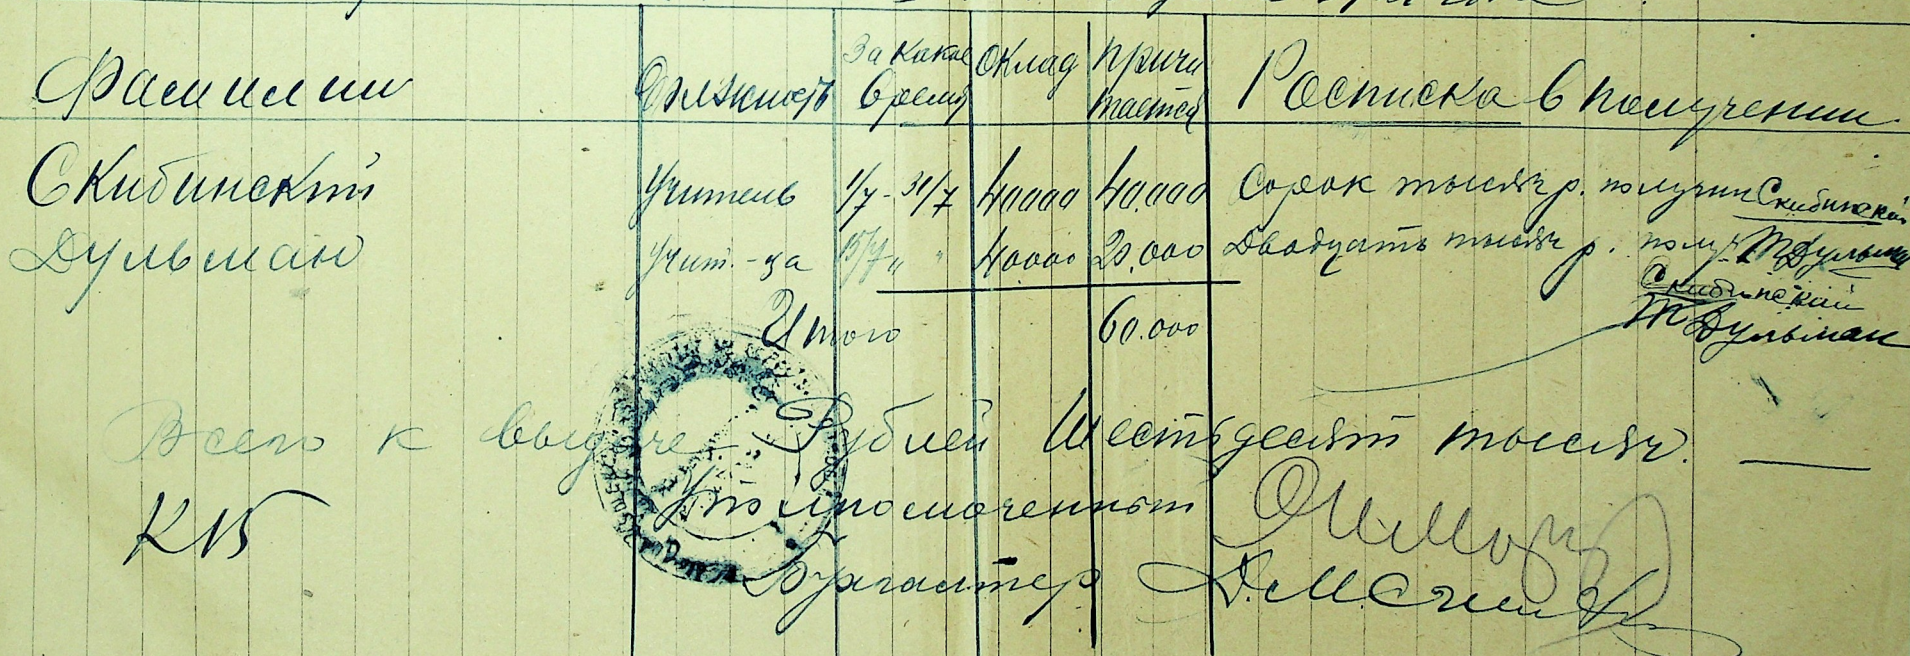 Фамилии Должность За какое время Оклад Причитается Росписка в получении
Скибинский Учитель 1/7 - 31/7 40000 40.000 Сорок тысяч р. получил Скибинский
Дульман Учит.-ца 15/7 „ „ 40000 20.000 Двадцать тысяч р. получ. Т Дульман
Скибинский
Итого 60.000 Т Дульман
Всего к выдаче - Рублей Шестьдесят тысяч. —
К 15 Уполномоченный
Бухгалтер